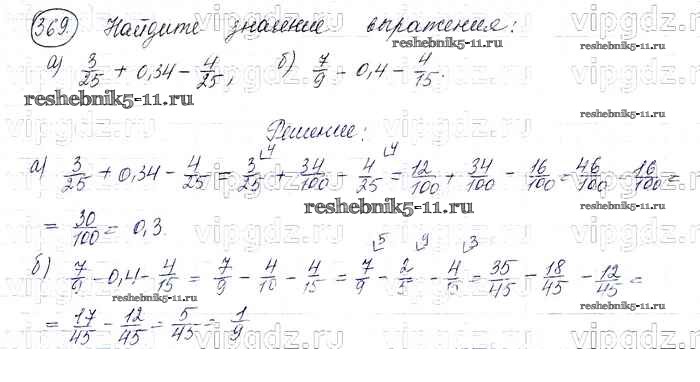 369. Найдите значение выражения:
а) 3/25 + 0,34 - 4/25, б) 7/9 - 0,4 - 4/15.
reshebnik5-11.ru
Решение:
а) 3/25 + 0,34 - 4/25 = 3/25 + 34/100 - 4/25 = 12/100 + 34/100 - 16/100 = 46/100 - 16/100 =
= 30/100 = 0,3.
б) 7/9 - 0,4 - 4/15 = 7/9 - 4/10 - 4/15 = 7/9 - 2/5 - 4/15 = 35/45 - 18/45 - 12/45 =
= 17/45 - 12/45 = 5/45 = 1/9